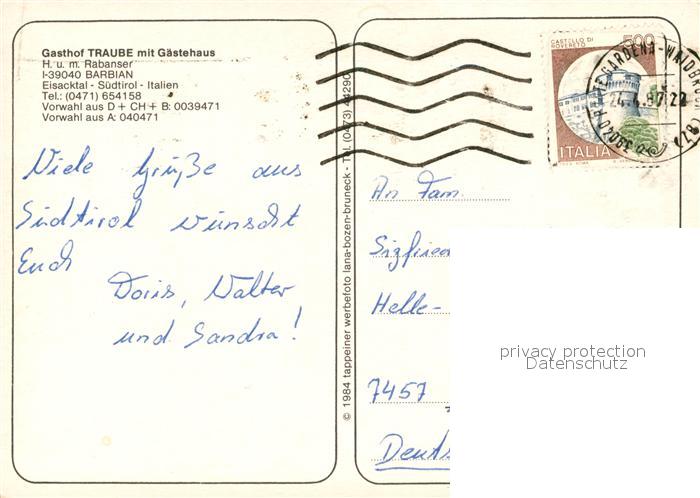 Gasthof TRAUBE mit Gästehaus
H. u. m. Rabanser
I-39040 BARBIAN
Eisacktal - Südtirol - Italien
Tel.: (0471) 654158
Vorwahl aus D + CH + B: 0039471
Vorwahl aus A: 040471
Viele Grüße aus
Südtirol wünscht
Euch
Doris, Walter
und Sandra!
© 1984 tappeiner werbefoto lana-bozen-bruneck - Tel. (0473)
CASTELLO DI
ROVERETO
500
ITALIA
An Fam.
Helle-
7457
privacy protection
Datenschutz